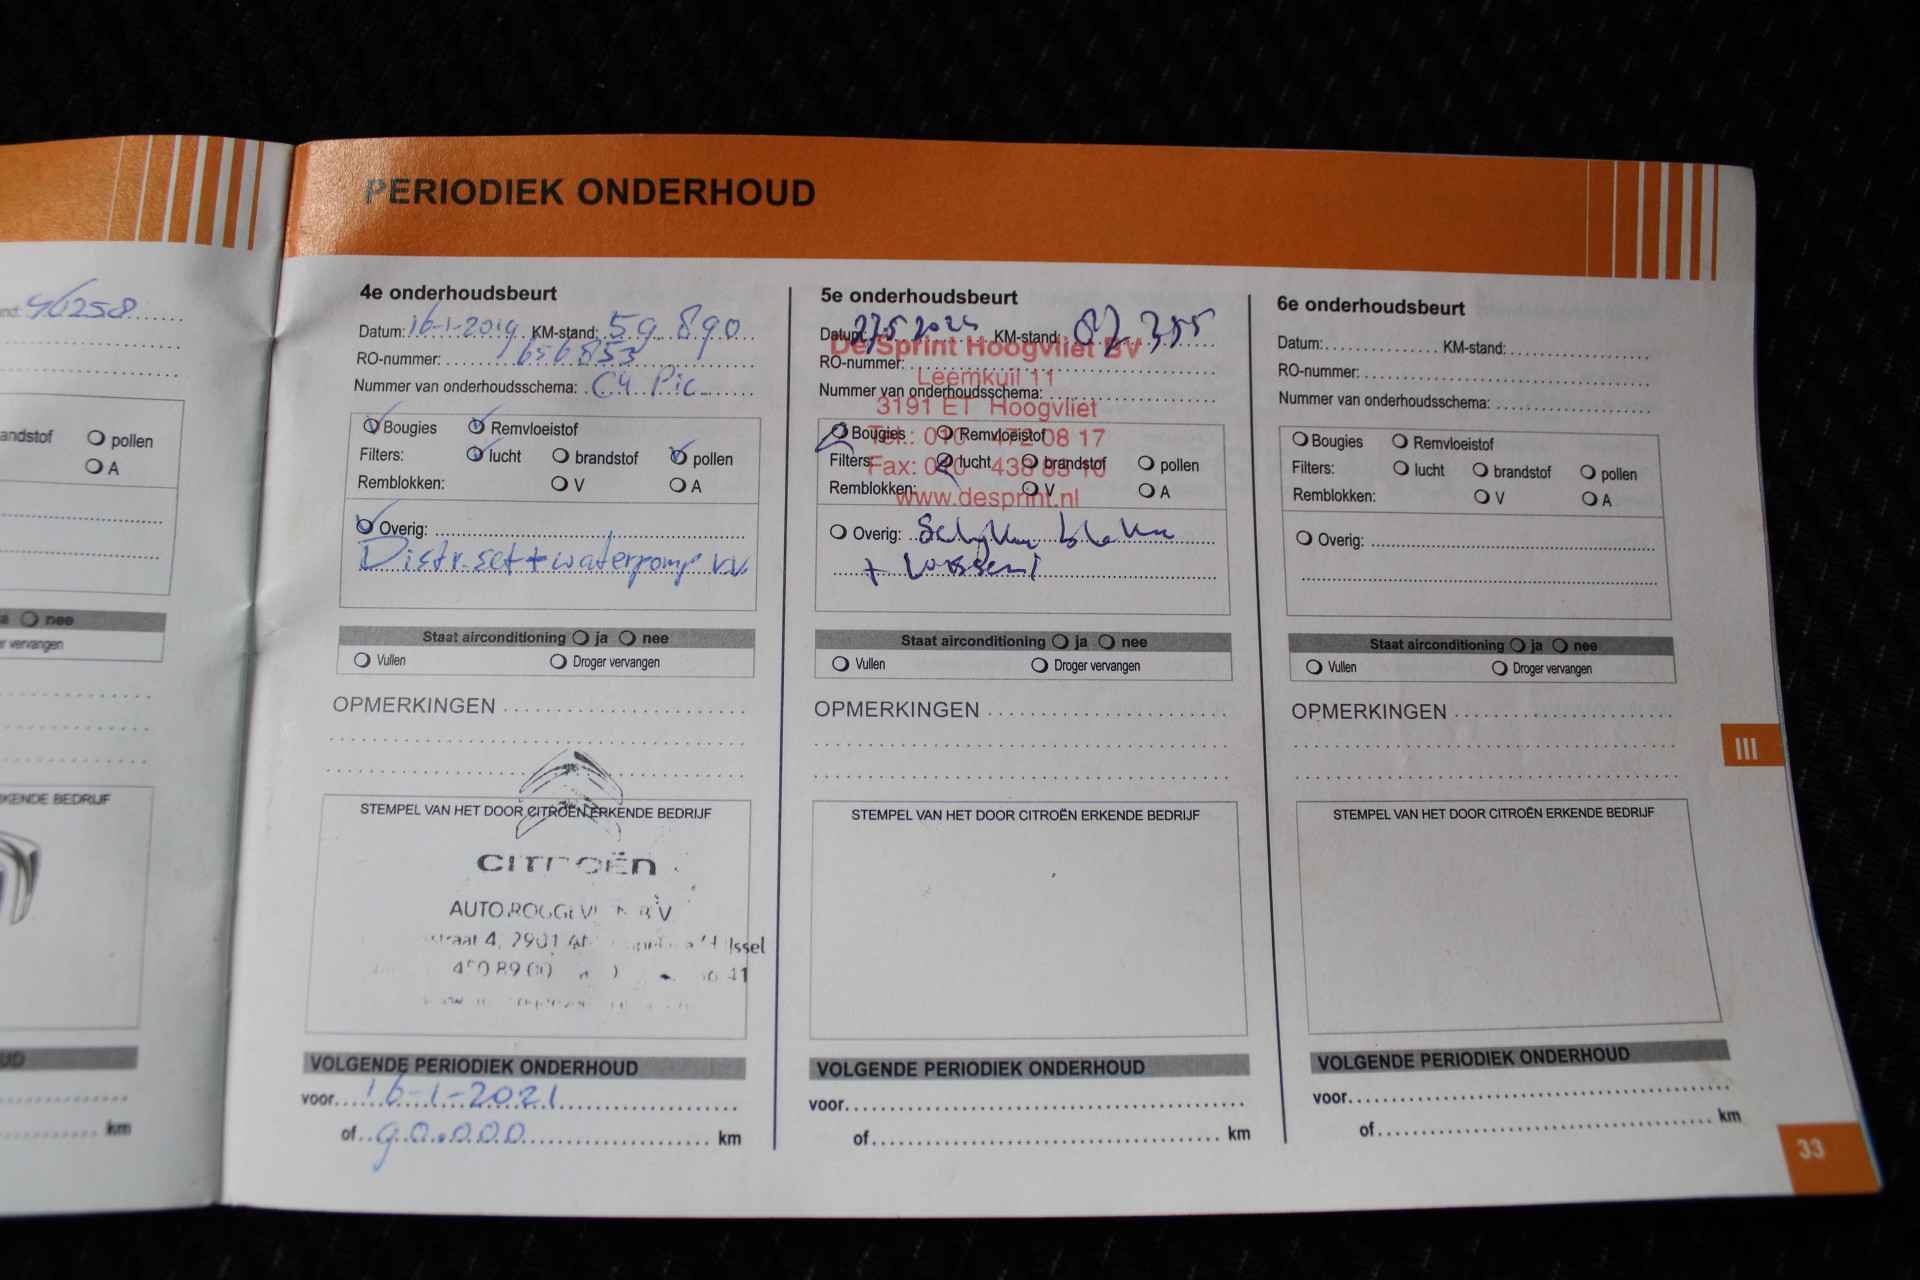 PERIODIEK ONDERHOUD
46258
andstof pollen
A
nee
vervangen
KENDE BEDRIJF
UD
km
4e onderhoudsbeurt
Datum: 16-1-2019 KM-stand: 59.890
RO-nummer: 1656853
Nummer van onderhoudsschema: C4 Pic
Bougies Remvloeistof
Filters: lucht brandstof pollen
Remblokken: V A
Overig:
Distr.set + waterpomp v.v.
Staat airconditioning ja nee
Vullen Droger vervangen
OPMERKINGEN
STEMPEL VAN HET DOOR CITROËN ERKENDE BEDRIJF
CITROËN
straat 4, 2901
VOLGENDE PERIODIEK ONDERHOUD
voor 16-1-2021
of 90.000 km
5e onderhoudsbeurt
Datum: KM-stand: 82355
De Sprint Hoogvliet BV
RO-nummer:
Leemkuil 11
Nummer van onderhoudsschema:
3191 ET Hoogvliet
Bougies Remvloeistof
Tel.: 010 472 08 17
Filters: lucht brandstof pollen
Fax: 010 438
Remblokken: V A
www.desprint.nl
Overig:
+
Staat airconditioning ja nee
Vullen Droger vervangen
OPMERKINGEN
STEMPEL VAN HET DOOR CITROËN ERKENDE BEDRIJF
VOLGENDE PERIODIEK ONDERHOUD
voor
of km
6e onderhoudsbeurt
Datum: KM-stand:
RO-nummer:
Nummer van onderhoudsschema:
Bougies Remvloeistof
Filters: lucht brandstof pollen
Remblokken: V A
Overig:
Staat airconditioning ja nee
Vullen Droger vervangen
OPMERKINGEN
STEMPEL VAN HET DOOR CITROËN ERKENDE BEDRIJF
VOLGENDE PERIODIEK ONDERHOUD
voor
of km
III
33